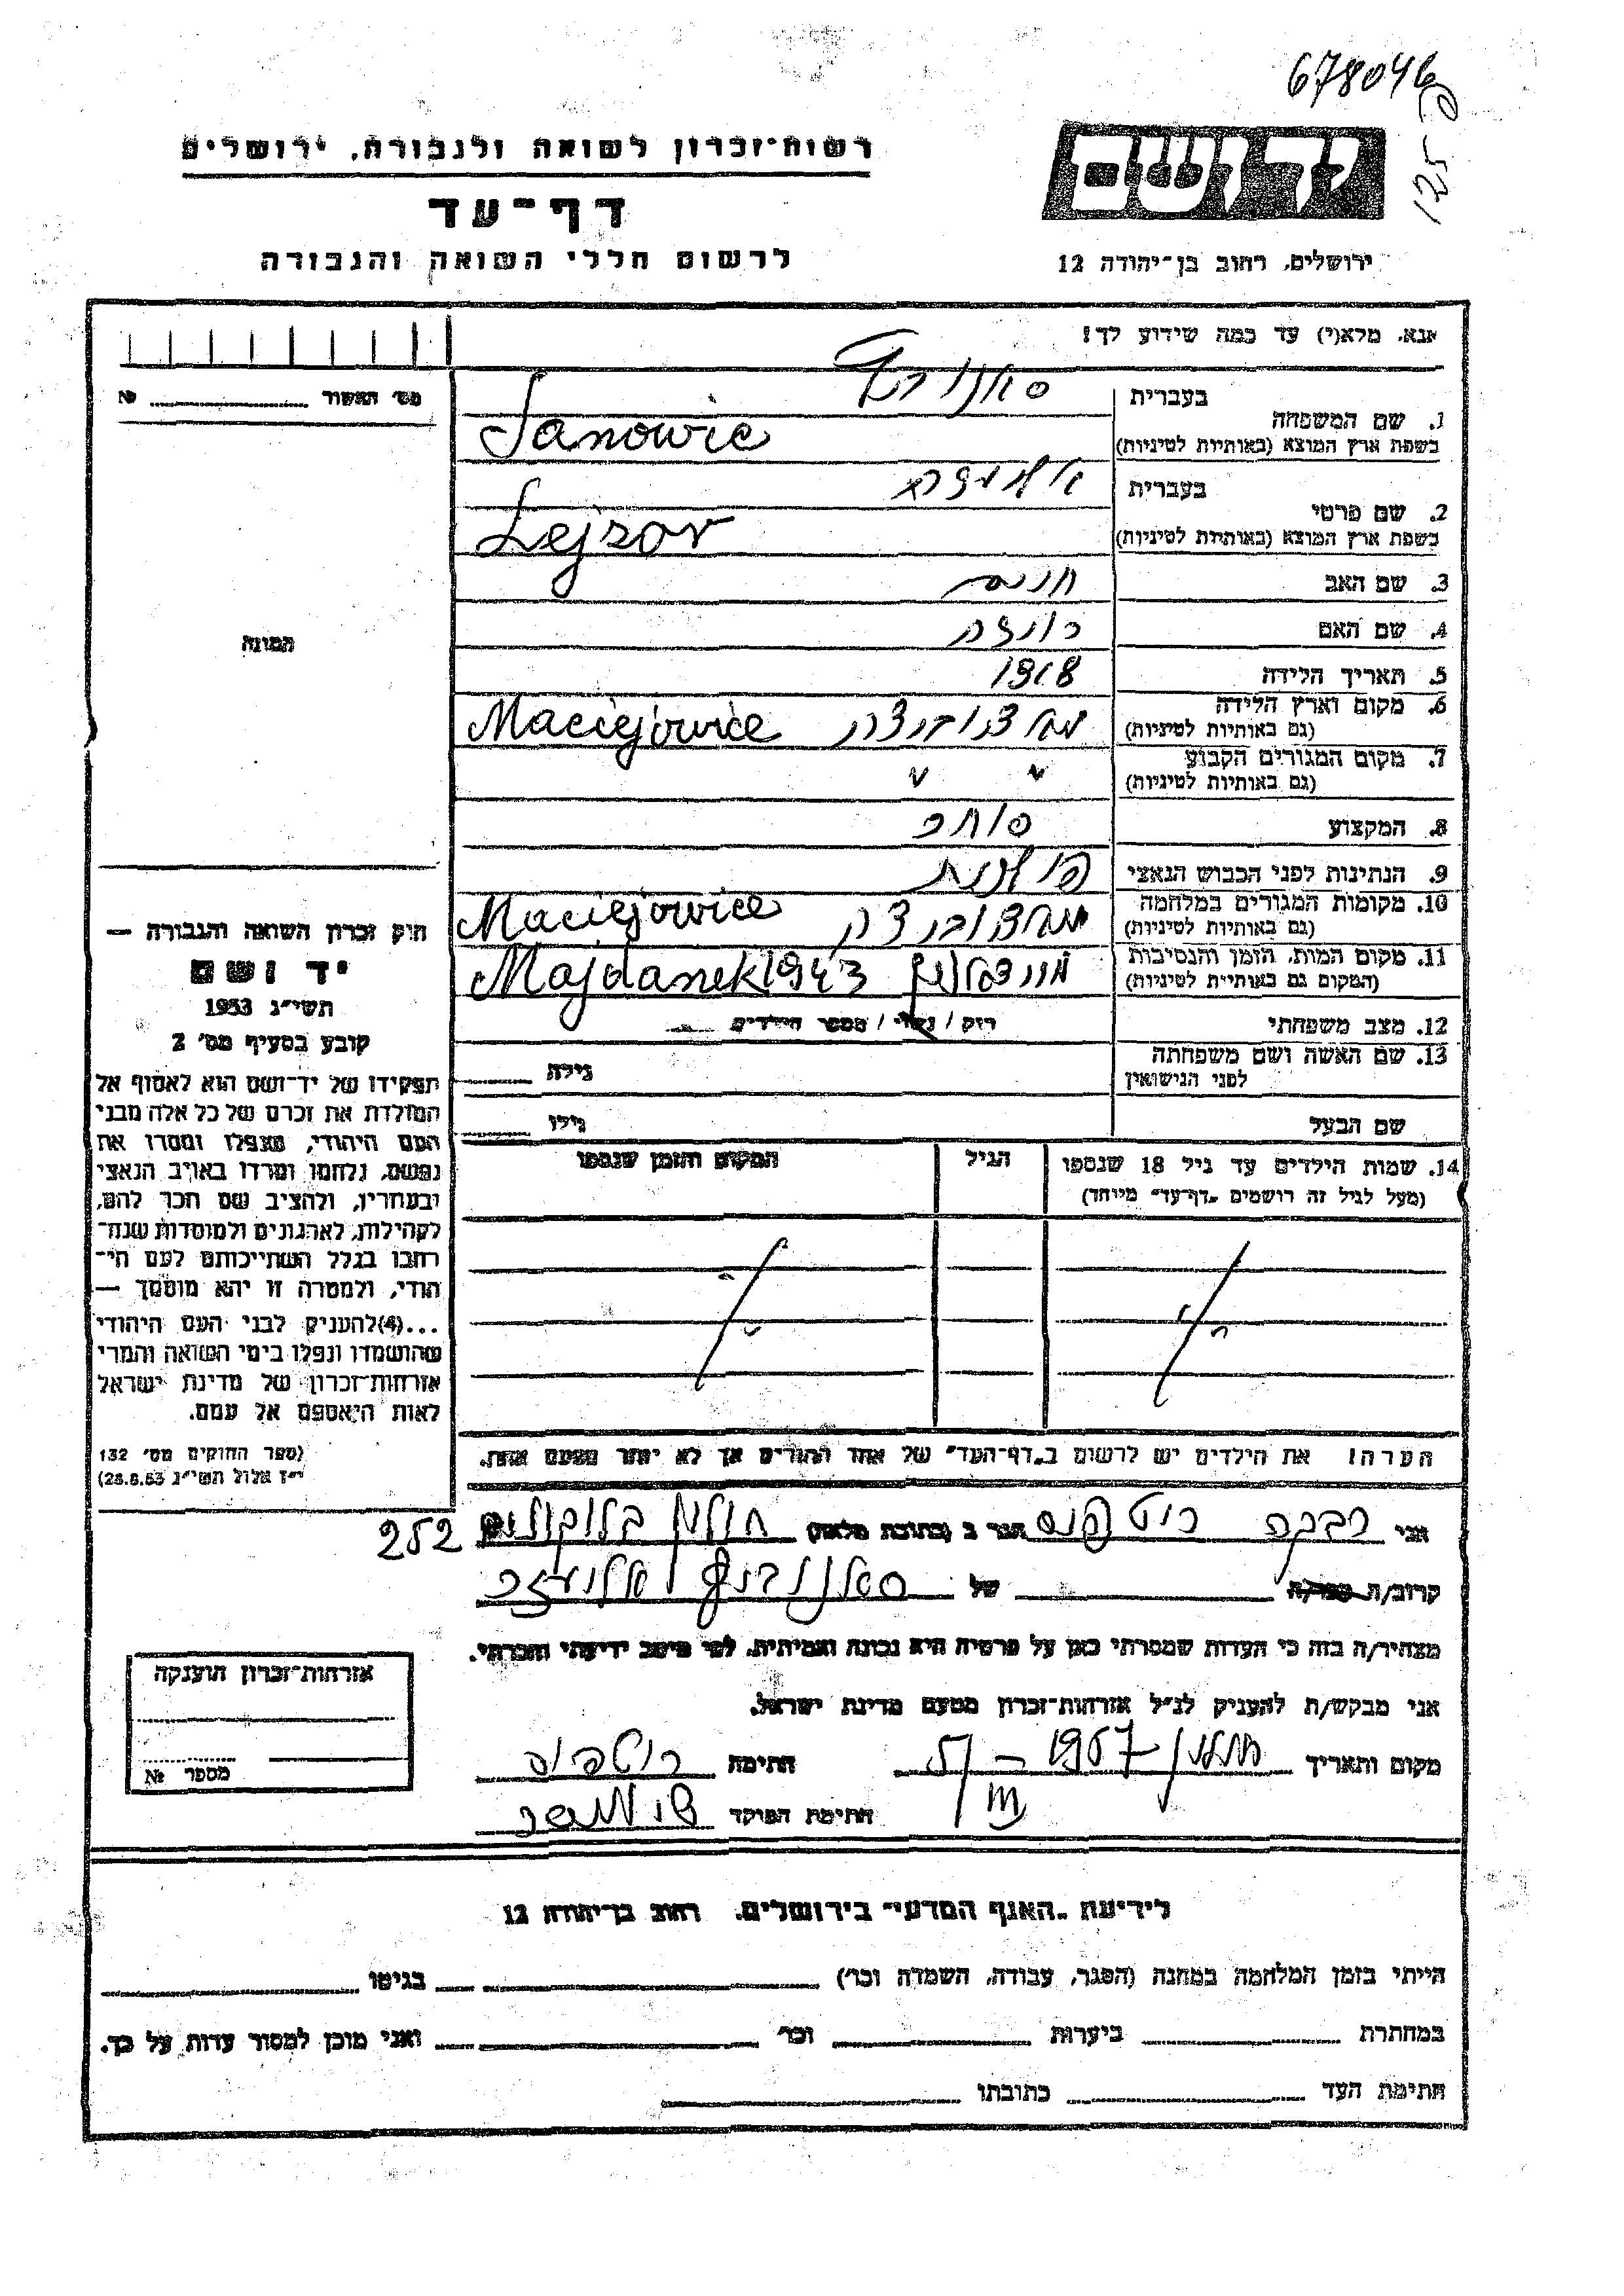 678046
125
רשות־זכרון לשואה ולגבורה, ירושלים
דף־עד
לרשום חללי השואה והגבורה
ידושם
ירושלים, רחוב בן־יהודה 12
אנא, מלא(י) עד כמה שידוע לך!
מס' האשור № 
1. שם המשפחה
בעברית
בשפת ארץ המוצא (באותיות לטיניות) Sanowic
2. שם פרטי
בעברית אליעזר
בשפת ארץ המוצא (באותיות לטיניות) Lejzor
3. שם האב
4. שם האם
5. תאריך הלידה 1918
6. מקום וארץ הלידה Maciejowice
(גם באותיות לטיניות)
7. מקום המגורים הקבוע " "
(גם באותיות לטיניות)
8. המקצוע סוחר
9. הנתינות לפני הכבוש הנאצי פולנית
10. מקומות המגורים במלחמה Maciejowice
(גם באותיות לטיניות)
11. מקום המות, הזמן והנסיבות Majdanek 1943
(המקום גם באותיות לטיניות)
12. מצב משפחתי רוק / נשוי / מספר הילדים
13. שם האשה ושם משפחתה גילה
לפני הנישואין
שם הבעל גילו
14. שמות הילדים עד גיל 18 שנספו הגיל המקום והזמן שנספו
(מעל לגיל זה רושמים "דף־עד" מיוחד)
הערה! את הילדים יש לרשום ב"דף־העד" של אחד ההורים אך לא יותר מפעם אחת.
התמונה
חוק זכרון השואה והגבורה —
יד ושם
תשי"ג 1953
קובע בסעיף מס' 2
תפקידו של יד־ושם הוא לאסוף אל
המולדת את זכרם של כל אלה מבני
העם היהודי, שנפלו ומסרו את
נפשם, נלחמו ומרדו באויב הנאצי
ובעוזריו, ולהציב שם וזכר להם,
לקהילות, לארגונים ולמוסדות שנח־
רבו בגלל השתייכותם לעם הי־
הודי, ולמטרה זו יהא מוסמך —
...(4) להעניק לבני העם היהודי
שהושמדו ונפלו בימי השואה והמרי
אזרחות־זכרון של מדינת ישראל
לאות היאספם אל עמם.
(ספר החוקים מס' 132
י"ז אלול תשי"ג 28.8.53)
אני רבקה הגר ב (כתובת מלאה) חולון 252
קרוב/ה של אליעזר
מצהיר/ה בזה כי העדות שמסרתי כאן על פרטיה היא נכונה ואמיתית, לפי מיטב ידיעתי והכרתי.
אני מבקש/ת להעניק לנ"ל אזרחות־זכרון מטעם מדינת ישראל.
מקום ותאריך חולון 1957 חתימה
חתימת הפוקד
אזרחות־זכרון הוענקה
מספר №
לידיעת "האגף המדעי" בירושלים, רחוב בן־יהודה 12
הייתי בזמן המלחמה במחנה (הסגר, עבודה, השמדה וכו') בגיטו
במחתרת ביערות וכו' ואני מוכן למסור עדות על כך.
חתימת העד כתובתו